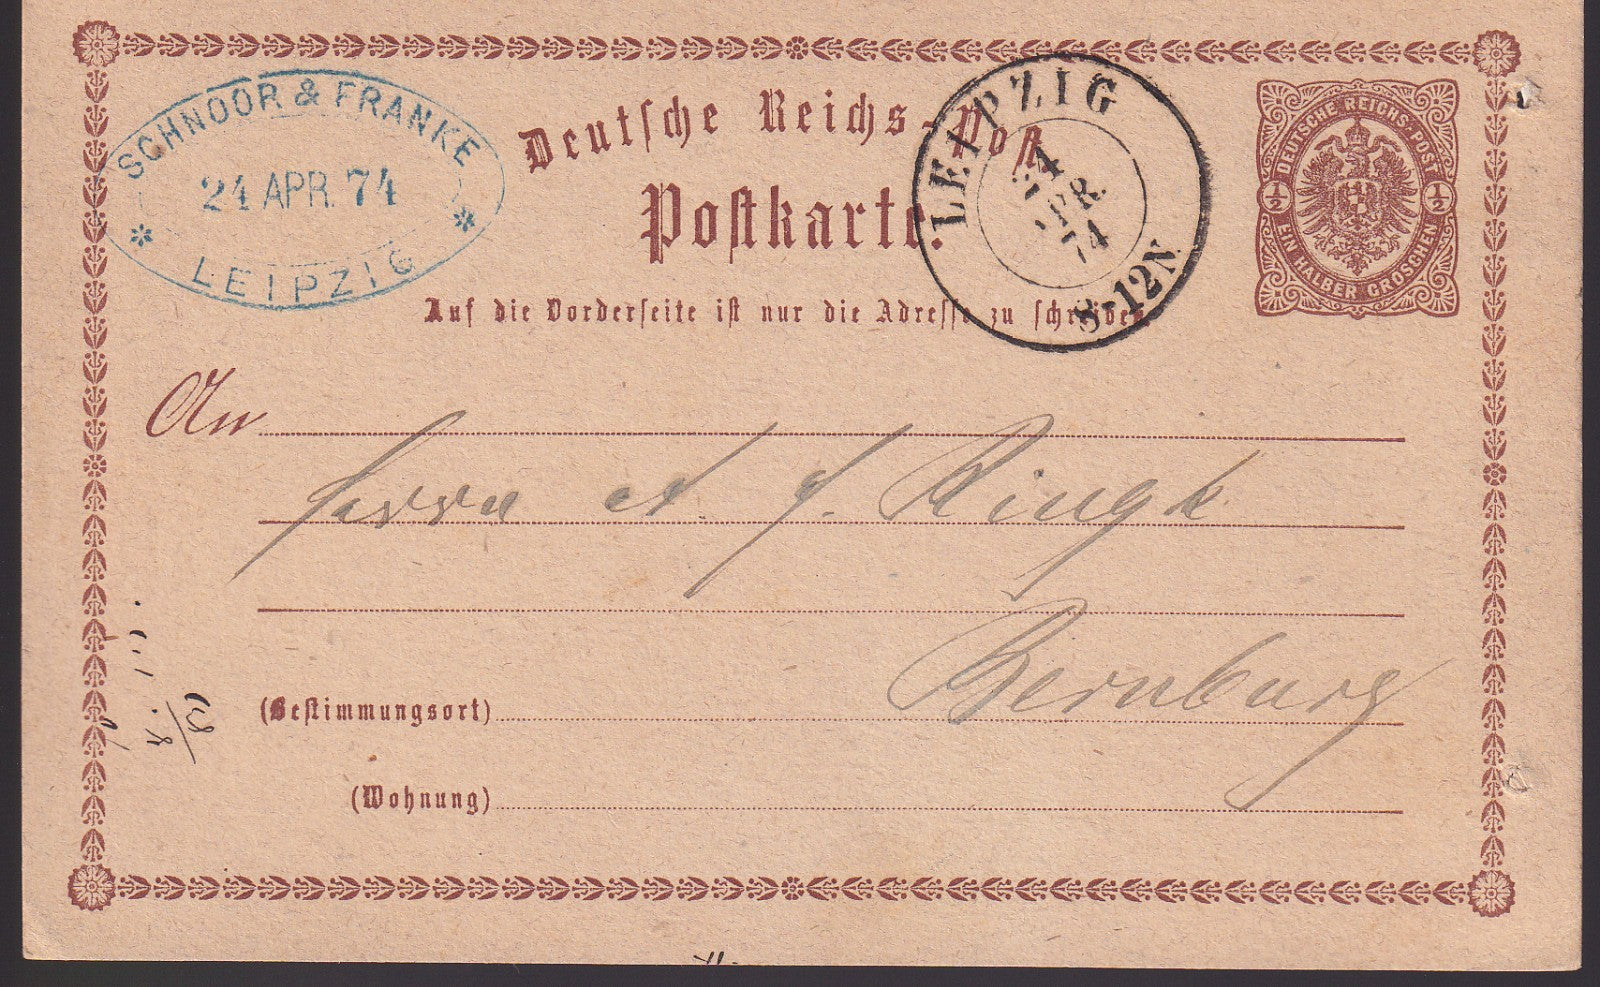 SCHNOOR & FRANKE
24 APR. 74
LEIPZIG
Deutſche Reichs-Poſt
Poſtkarte.
Auf die Vorderſeite iſt nur die Adreſſe zu ſchreiben.
LEIPZIG
24
APR.
74
8-12N
DEUTSCHE REICHS-POST
½ ½
EIN HALBER GROSCHEN
An
Herrn A. J. Ringk
Bernburg
(Beſtimmungsort)
(Wohnung)